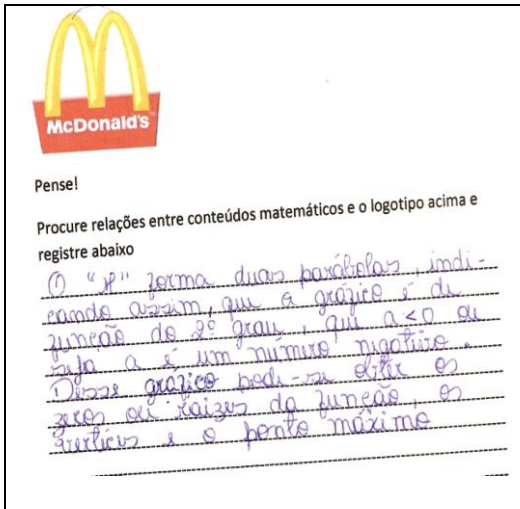 McDonald's
Pense!
Procure relações entre conteúdos matemáticos e o logotipo acima e
registre abaixo
O "M" forma duas parábolas, indi-
cando assim, que o gráfico é de
função do 2º grau, que a<0 ou
seja a é um número negativo.
Desse gráfico pode-se obter os
zeros ou raizes da função, os
vértices e o ponto máximo